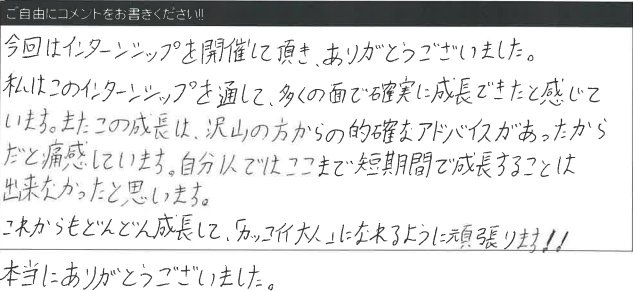 ご自由にコメントをお書きください!!
今回はインターンシップを開催して頂き、ありがとうございました。
私はこのインターンシップを通して、多くの面で確実に成長できたと感じて
います。またこの成長は、沢山の方からの的確なアドバイスがあったから
だと痛感しています。自分1人ではここまで短期間で成長することは
出来なかったと思います。
これからもどんどん成長して、「カッコイイ大人」になれるように頑張ります!!
本当にありがとうございました。